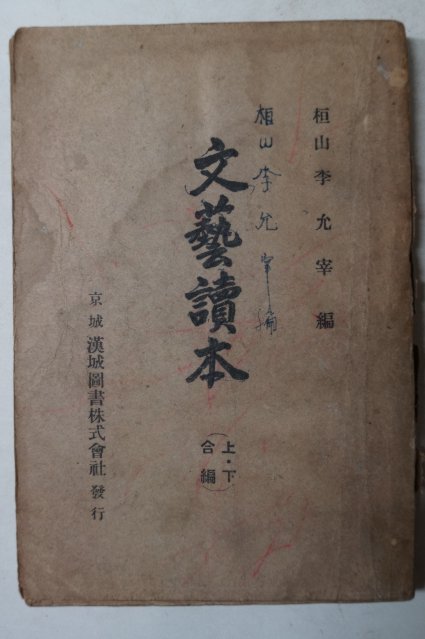 桓山 李允宰 編
桓山李允宰編
文藝讀本
(上·下
合編)
京城 漢城圖書株式會社 發行